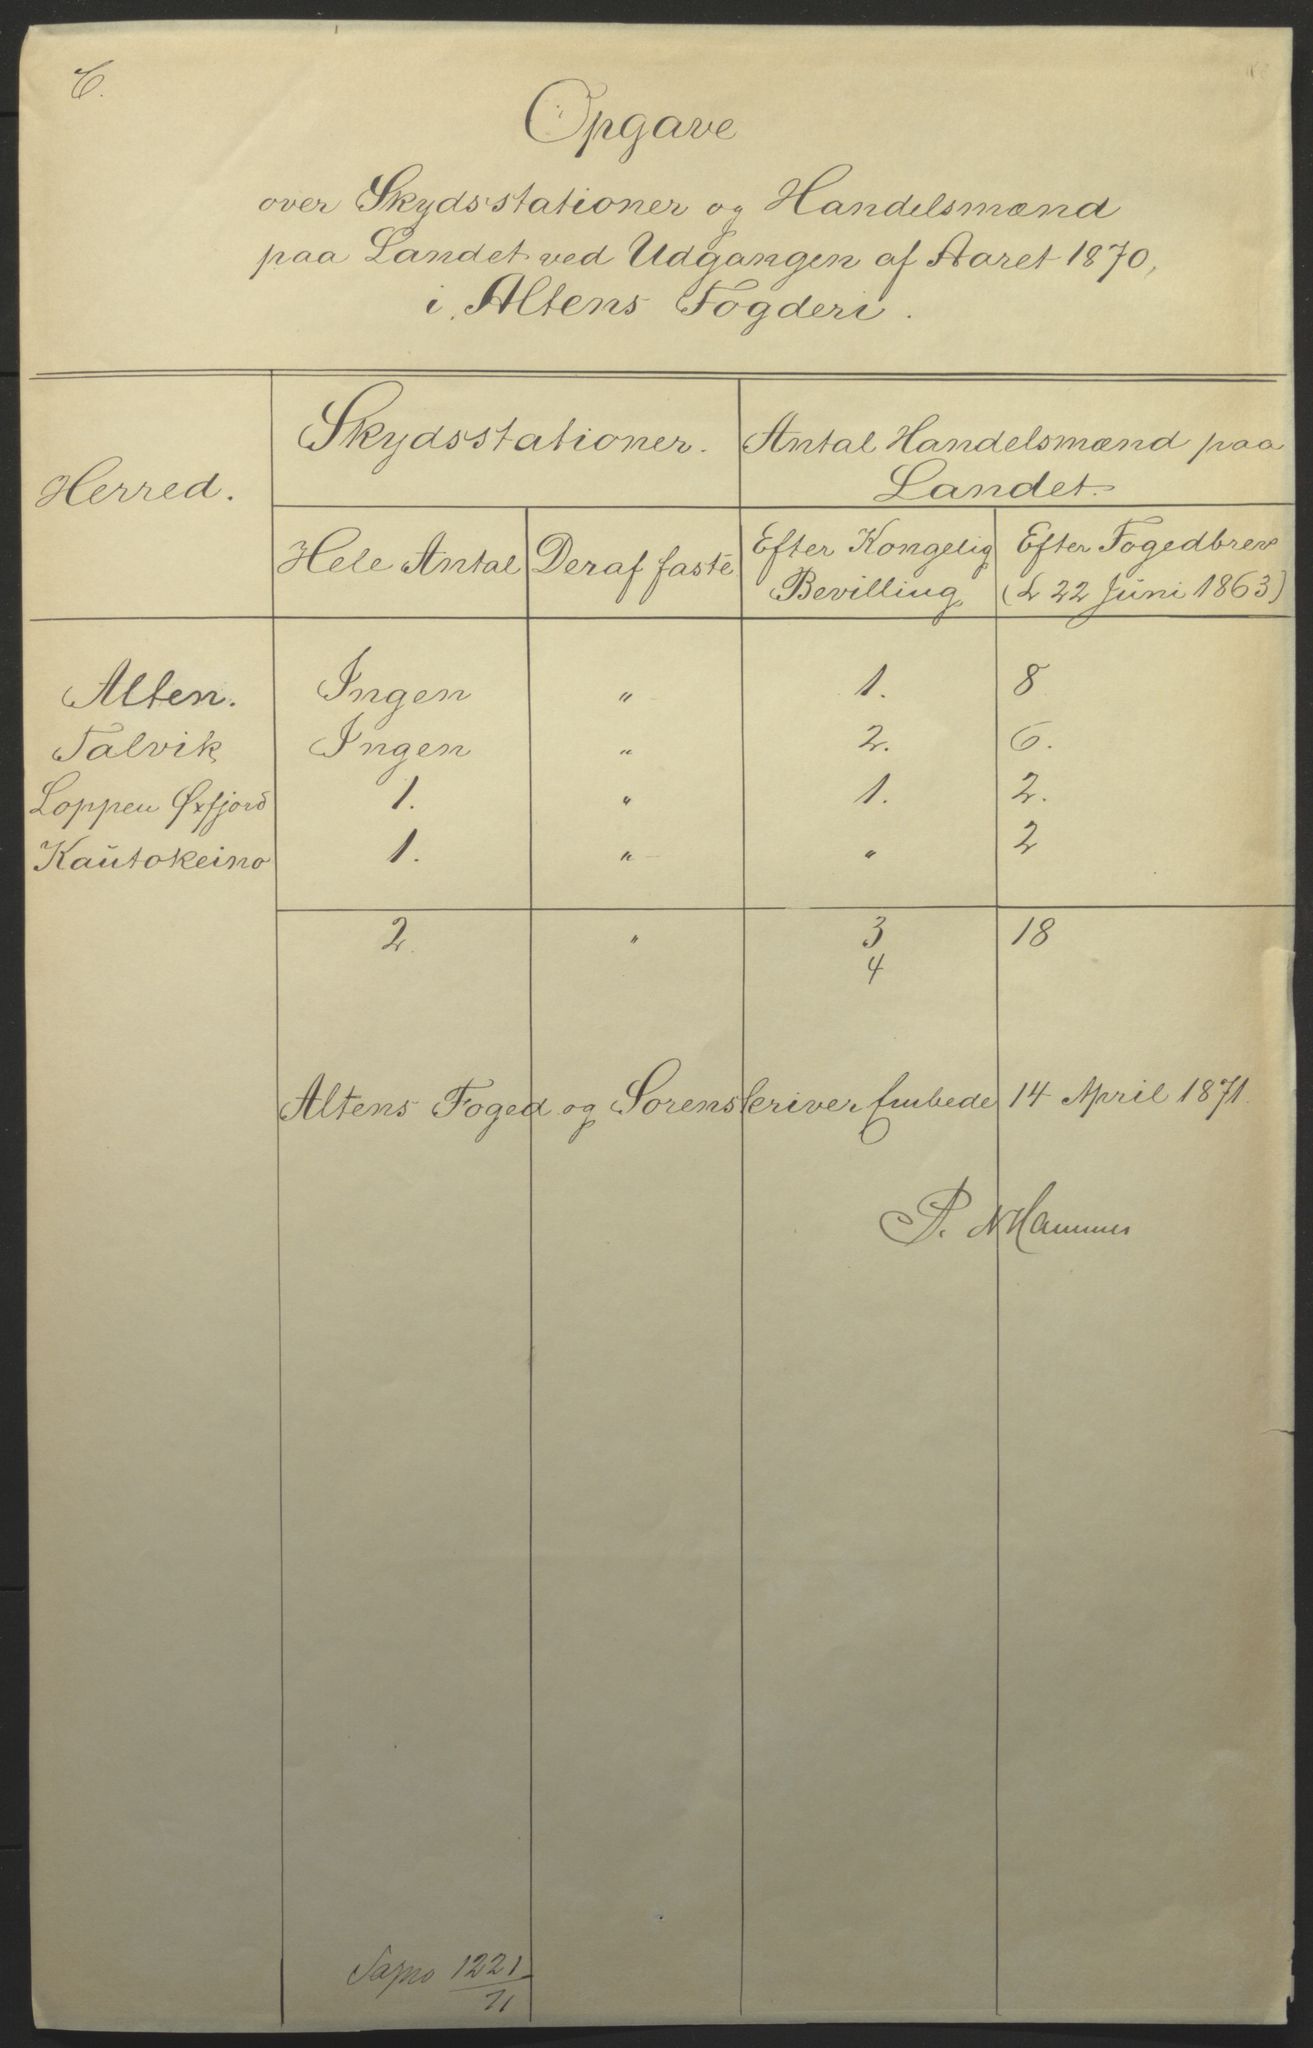 C.
Opgave
over Skydsstationer og Handelsmænd
paa Landet ved Udgangen af Aaret 1870,
i Altens Fogderi.
Herred. Skydsstationer. Antal Handelsmænd paa
Landet.
Hele Antal Deraf faste Efter Kongelig Efter Fogedbrev
Bevilling (L 22 Juni 1863)
Alten. Ingen " 1. 8
Talvik Ingen " 2. 6.
Loppen Øxfjord 1. " 1. 2.
Kautokeino 1. " " 2
2 " 3 18
4
Altens Foged og Sorenskriver Embede 14 April 1871.
P. N Hammer
1221
71